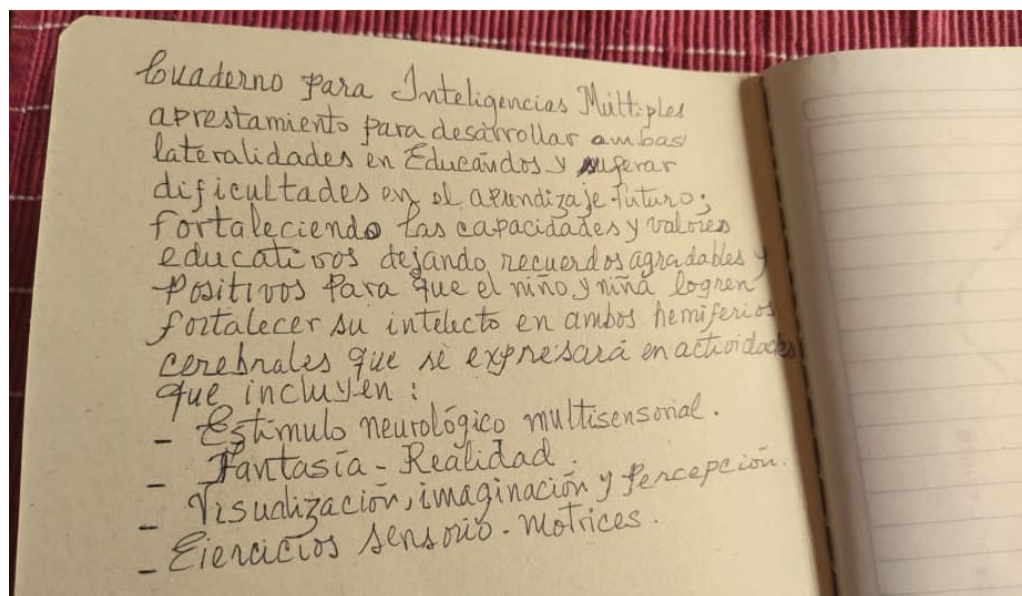 Cuaderno para Inteligencias Múltiples
aprestamiento para desarrollar ambas
lateralidades en Educándos y superar
dificultades en el aprendizaje futuro;
fortaleciendo las capacidades y valores
educativos dejando recuerdos agradables y
positivos para que el niño y niña logren
fortalecer su intelecto en ambos hemiferios
cerebrales que se expresará en actividades
que incluyen:
- Estímulo neurológico multisensorial.
- Fantasía - Realidad.
- Visualización, imaginación y percepción.
- Ejercicios sensorio-motrices.